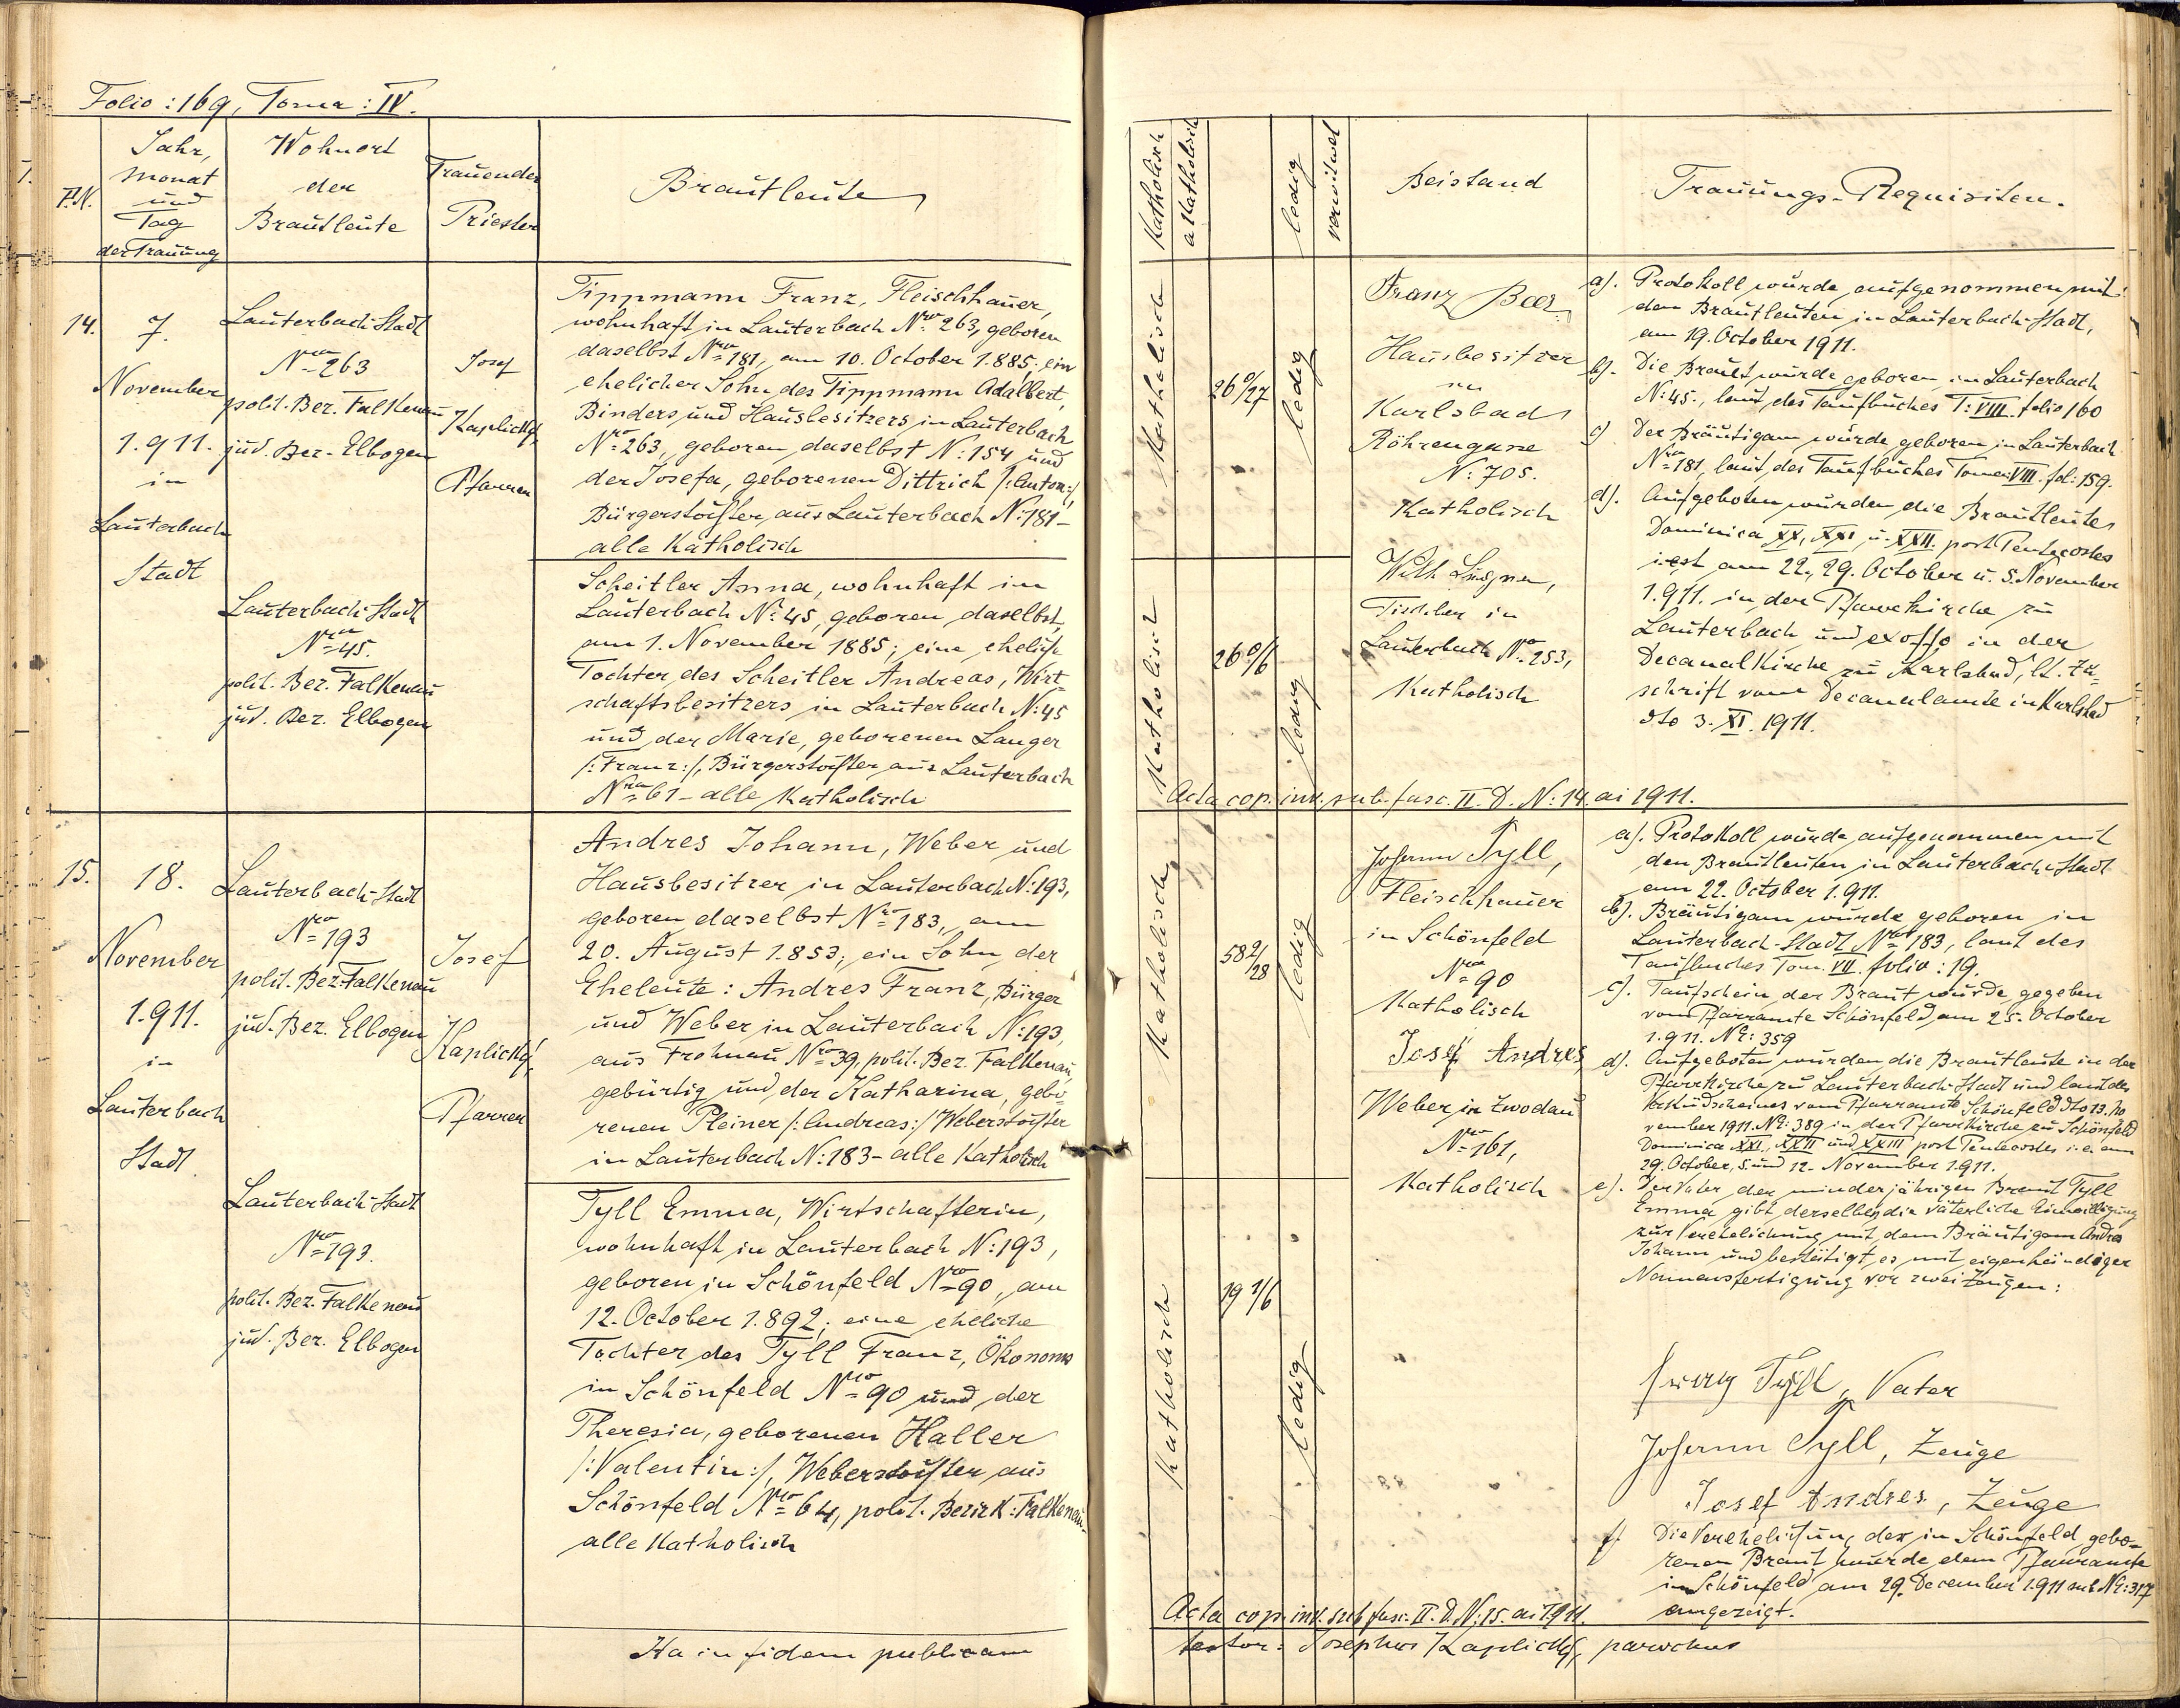 Folio: 169, Toma: IV.
P.N.
Jahr,
Monat
und
Tag
der Trauung
Wohnort
der
Brautleute
Trauender
Priester
Brautleute
14.
7.
November
1.911.
in
Lauterbach
Stadt
Lauterbach-Stadt
Nro 263
polit. Ber. Falkenau
jud. Ber. Elbogen
Josef
Kaplický,
Pfarrer
Tippmann Franz, Fleischhauer,
wohnhaft in Lauterbach Nro 263, geboren
daselbst Nro 181, am 10. October 1.885; ein
ehelicher Sohn des Tippmann Adalbert,
Binders und Hausbesitzers in Lauterbach
Nro 263, geboren daselbst N: 154 und
der Josefa, geborenen Dittrich /:Anton:/,
Bürgerstochter aus Lauterbach N: 181-
alle Katholisch
Lauterbach-Stadt
Nro 45.
polit. Bez. Falkenau
jud. Bez. Elbogen
Scheitler Anna, wohnhaft in
Lauterbach No 45, geboren daselbst,
am 1. November 1885; eine eheliche
Tochter des Scheitler Andreas, Wirt-
schaftsbesitzers in Lauterbach N: 45
und der Marie, geborenen Langer
/:Franz:/, Bürgerstochter aus Lauterbach
Nro 61 - alle Katholisch
15.
18.
November
1.911.
in
Lauterbach
Stadt
Lauterbach-Stadt
Nro 193
polit. Bez. Falkenau
jud. Bez. Elbogen
Josef
Kaplický,
Pfarrer
Andres Johann, Weber und
Hausbesitzer in Lauterbach N: 193,
geboren daselbst Nro 183, am
20. August 1.853; ein Sohn der
Eheleute: Andres Franz, Bürger
und Weber in Lauterbach N: 193,
aus Frohnau Nro 39, polit. Bez. Falkenau,
gebürtig und der Katharina, gebo-
renen Pleiner /:Andreas:/ Weberstochter
in Lauterbach N: 183 - alle Katholisch
Lauterbach-Stadt
Nro 193.
polit. Bez. Falkenau
jud. Ber. Elbogen
Tyll Emma, Wirtschafterin,
wohnhaft in Lauterbach N: 193,
geboren in Schönfeld Nro 90, am
12. October 1.892; eine eheliche
Tochter des Tyll Franz, Ökonoms
in Schönfeld Nro 90 und der
Theresia, geborenen Haller
/:Valentin:/, Weberstochter aus
Schönfeld Nro 64, polit. Bezirk: Falkenau-
alle Katholisch
Ita in fidem publicam
Katholisch
aKatholisch
ledig
verwitwet
Beistand
Trauungs-Requisiten.
Katholisch
26 0/27
ledig
Franz Beer
Hausbesitzer
in
Karlsbad
Röhrengasse
N: 705.
Katholisch
Katholisch
26 0/6
ledig
Tischler in
Lauterbach No 253,
Katholisch
a). Protokoll wurde aufgenommen mit
den Brautleuten in Lauterbach-Stadt,
am 19. October 1911.
b). Die Braut wurde geboren in Lauterbach
N: 45., laut des Taufbuches T: VIII. folio 160
c) Der Bräutigam wurde geboren in Lauterbach
Nro 181, laut des Taufbuches Tome: VIII. fol: 159.
d). Aufgeboten wurden die Brautleute
Dominica XX, XXI, u. XXII. post Pentecostes
i.est am 22., 29. October u. 5. November
1.911. in der Pfarrkirche zu
Lauterbach und exoffo in der
Decanalkirche zu Karlsbad, lt. Zu-
schrift vom Decanalamte in Karlsbad
dto 3. XI. 1911.
Acta cop. inv. sub. fasc. II. D. N: 14 ai 1911.
Katholisch
58 2/28
ledig
Johann Tyll,
Fleischhauer
in Schönfeld
Nro 90
Katholisch
Josef Andres
Weber in Zwodau
Nro 161,
Katholisch
Katholisch
19 1/6
ledig
a). Protokoll wurde aufgenommen mit
den Brautleuten in Lauterbach-Stadt
am 22. October 1.911.
b). Bräutigam wurde geboren in
Lauterbach-Stadt Nro 183, laut des
Taufbuches Tom. VII. folio: 19.
c). Taufschein der Braut wurde gegeben
vom Pfarramte Schönfeld, am 25. October
1.911. No: 359
d). Aufgeboten wurden die Brautleute in der
Pfarrkirche zu Lauterbach-Stadt und laut des
Verkündscheines vom Pfarramte Schönfeld dto 13. No
vember 1911. No: 389 in der Pfarrkirche zu Schönfeld
Dominica XXI., XXII und XXIII post Pentecostes i.e. am
29. October, 5. und 12. November 1.911.
e). Der Vater der minderjährigen Braut Tyll
Emma gibt derselben die väterliche Einwilligung
zur Verehelichung mit dem Bräutigam Andres
Johann und bestätigt es mit eigenhändiger
Namensfertigung vor zwei Zeugen:
Franz Tyll, Vater
Johann Tyll, Zeuge
Josef Andres, Zeuge
f. Die Verehelichung der in Schönfeld gebo-
renen Braut wurde dem Pfarramte
in Schönfeld am 29. December 1.911 sub No: 317
angezeigt.
Acta cop. inv. sub fasc. II. D. N: 15. ai 1911.
testor: Josephus Kaplický, parochus